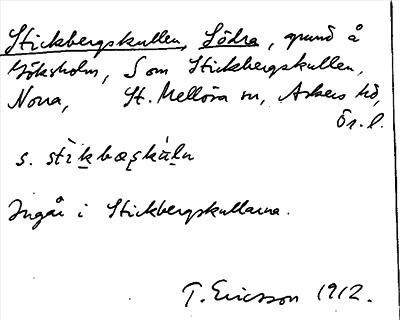 Stickbergskullen, Södra, grund å
Göksholm, S om Stickbergskullen,
Norra, St. Mellösa sn, Askers hd,
Ör. l.
s. stikbærskàln
Ingår i Stickbergskullarna.
T. Ericsson 1912.